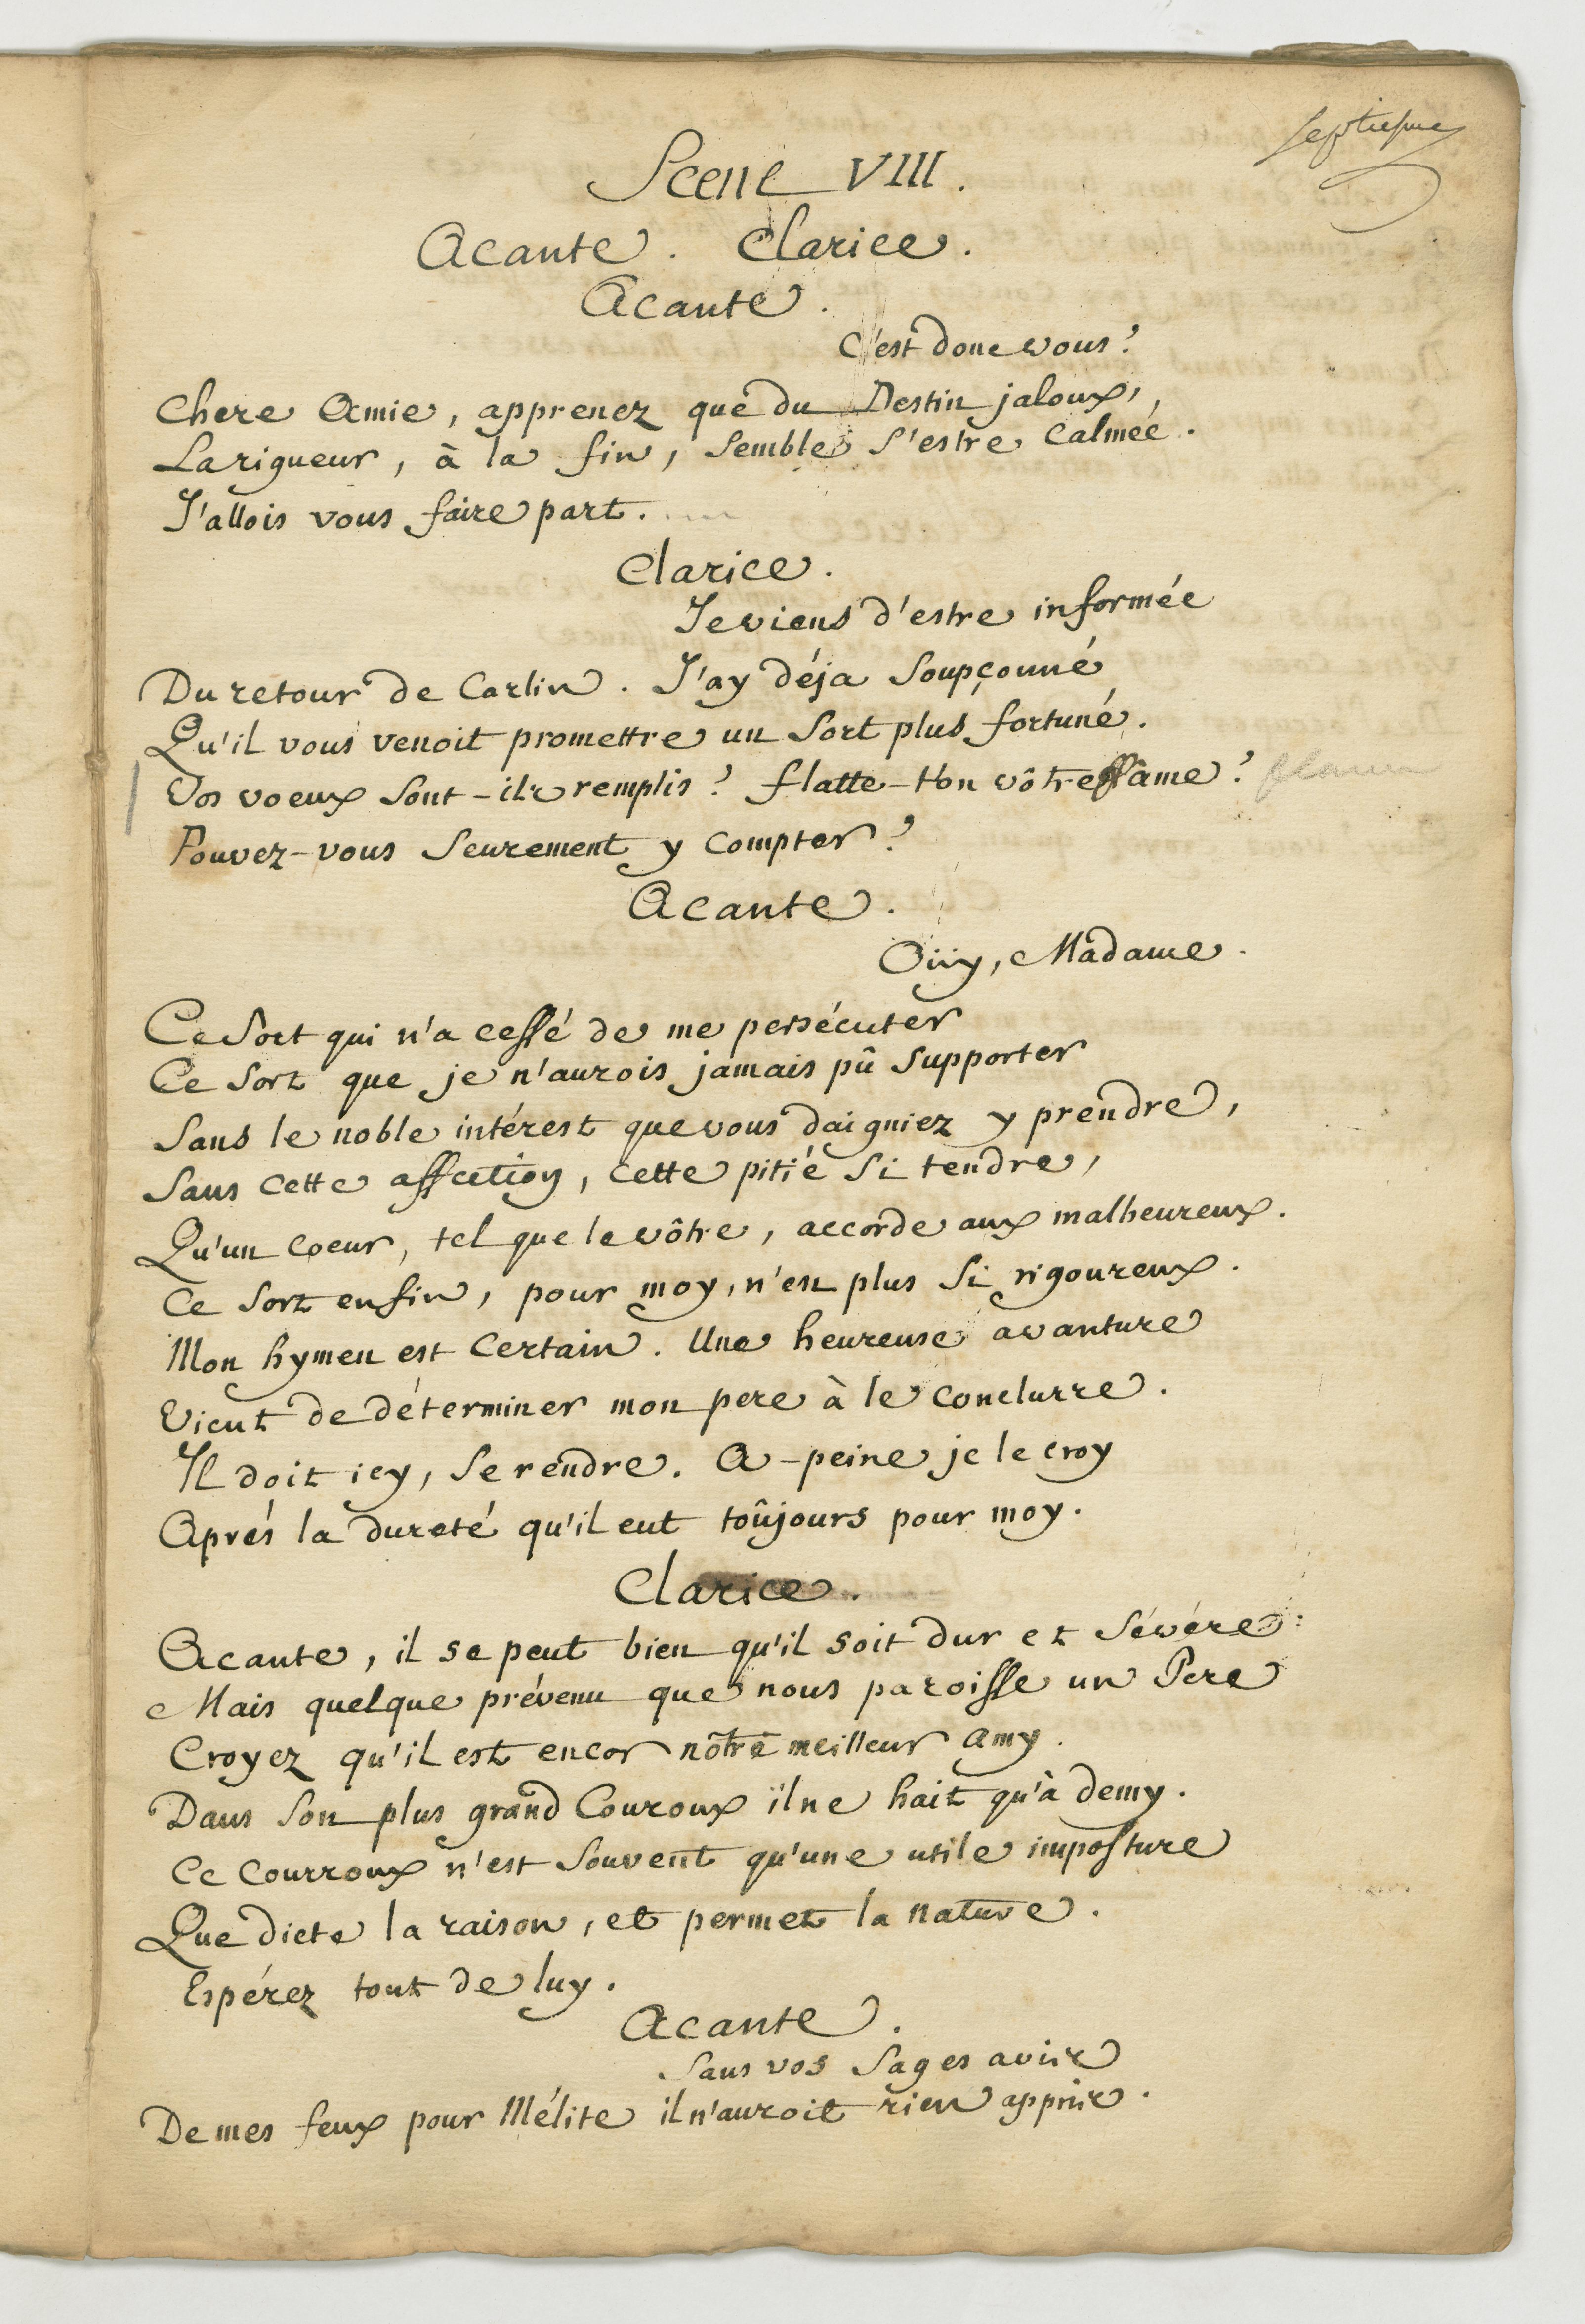 septiesme
Scene VIII.
Acante. Clarice.
Acante.
C'est donc vous?
Chere Amie, apprenez que du Destin jaloux,
La rigueur, à la fin, semble s'estre calmée.
J'allois vous faire part. ...
Clarice.
Je viens d'estre informée
Du retour de Carlin. J'ay déja soupçonné
Qu'il vous venoit promettre un sort plus fortuné.
Vos voeux sont-ils remplis? flatte-t'on vôtre flâme? flame
Pouvez-vous seurement y compter?
Acante.
Oüy, Madame.
Ce sort qui n'a cessé de me persécuter
Ce sort que je n'aurois jamais pû supporter
Sans le noble intérest que vous daigniez y prendre,
Sans cette affection, cette pitié si tendre,
Qu'un coeur, tel que le vôtre, accorde aux malheureux.
Ce sort enfin, pour moy, n'est plus si rigoureux.
Mon hymen est certain. Une heureuse avanture
Vient de déterminer mon pere à le conclurre.
Il doit icy, se rendre. A-peine je le croy
Aprés la dureté qu'il eut toûjours pour moy.
Clarice.
Acante, il se peut bien qu'il soit dur et sévére:
Mais quelque prévenu que nous paroisse un Pere
Croyez qu'il est encor nôtre meilleur amy.
Dans son plus grand Couroux il ne hait qu'à demy.
Ce Courroux n'est souvent qu'une utile imposture
Que dicte la raison, et permet la nature.
Espérez tout de luy.
Acante.
Sans vos sages avis
De mes feux pour Mélite il n'auroit rien appris.